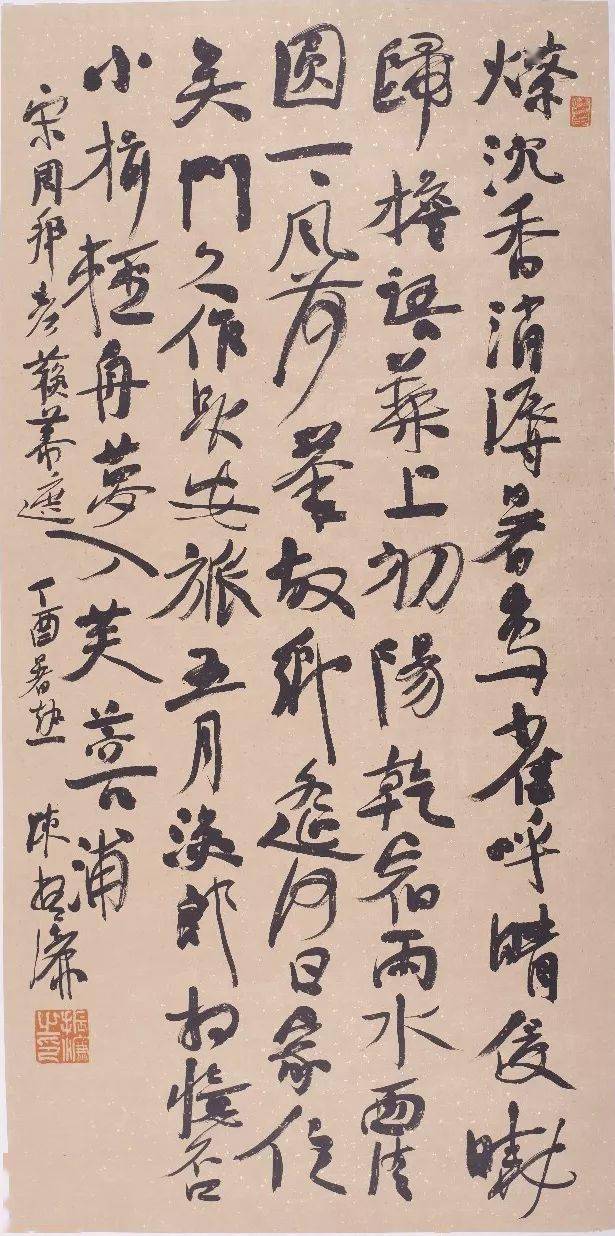 燎沈香消溽暑鳥雀呼晴侵曉
歸檐語葉上初陽乾宿雨水面清
圓一一風荷舉故鄉遙何日家住
吴門久作長安旅五月漁郎相憶否
小楫輕舟夢入芙蓉浦
宋周邦彦蘇幕遮 丁酉暑熱 陳振濂
振濂之印